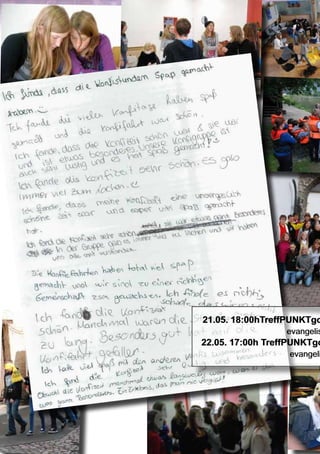 Ich finde, dass die Konfistunden Spaß gemacht
haben.
Ich fande die vielen Konfitage haben spaß
gemacht und die Konfifahrt war schön.
Ich fande, dass die Konfizeit schön war & sie war
und ist etwas besonderes. Unsere Konfigruppe ist
auch sehr lustig und es hat spaß gemacht!
Ich fande die konfizeit sehr schön. Es gab
immer viel zum lachen.
Ich fande, dass meine Konfizeit eine
schöne zeit war und super viel spaß gemacht
hat.
Ich fand die Konfizeit sehr schön, sie war etwas ganz besonderes
In der Gruppe gab es immer was zu lachen und wir haben
uns alle gut verstanden.
Die Konfifahrten haben total viel Spaß
gemacht und wir sind zu einer richtigen
Gemeinschaft zusammen gewachsen. Ich finde es richtig
schade, dass
Ich fand die Konfizeit
schön. Manchmal waren die
zu lang. Besonders gut hat mir die
Konfifahrt gefallen.
Ich hatte viel Spaß mit den anderen
Ich fand die Konfizeit sehr
Obwohl die Konfizeit manchmal etwas langweilig war, war es
was ganz Besonderes. Ein Erlebnis, das man nie vergisst!
21.05. 18:00hTreffPUNKTgo
evangelis
22.05. 17:00h TreffPUNKTgo
evangeli